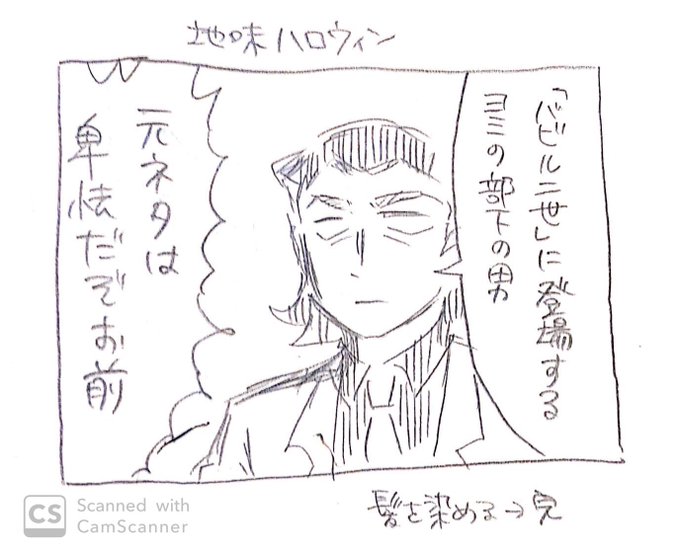 地味ハロウィン
「バビル二世」に登場する
ヨミの部下の男
元ネタは
卑怯だぞお前
髪を染める→完
CS Scanned with
CamScanner